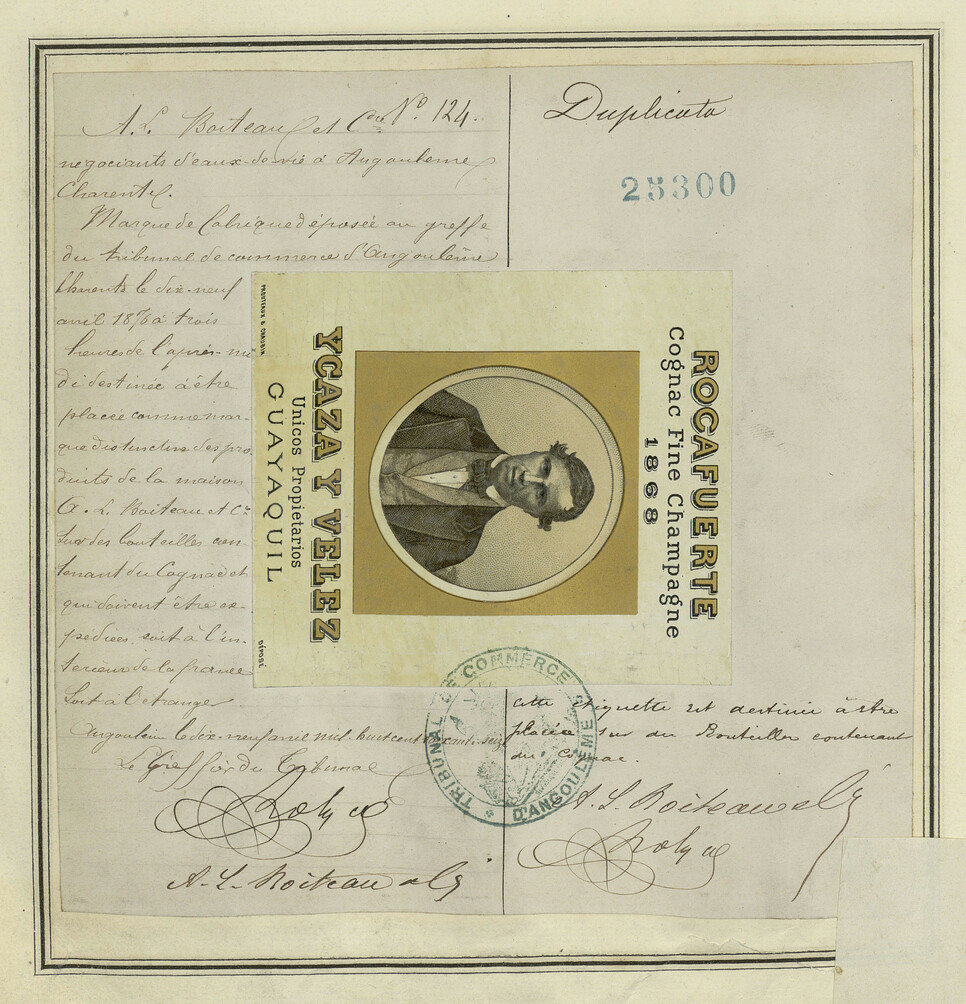 A. L. Boiteau et Cie No. 124.
negociants d'eaux-de-vie à Angouleme
Charente.
Marque de fabrique déposée au greffe
du tribunal de commerce d'Angoulême
Charente le dix-neuf
avril 1876 à trois
heures de l'après-mi
di destinée à être
placée comme mar-
que distinctive des pro
duits de la maison
A. L. Boiteau et Cie
sur des bouteilles con-
tenant du Cognac et
qui doivent être ex-
pediees, soit à l'in-
terieur de la france
soit à l'etranger
Angoulême le dix-neuf avril mil huit cent soixante-seize
Le Greffier du Tribunal
A. L. Boiteau et Cie
Duplicata
25300
ROCAFUERTE
Cognac Fine Champagne
1868
YCAZA Y VELEZ
Unicos Propietarios
GUAYAQUIL
PROUTEAUX & CHAUBIN
DÉPOSÉ
TRIBUNAL DE COMMERCE
D'ANGOULEME
Cette étiquette est destinée à être
placée sur des Bouteilles contenant
du Cognac.
A. L. Boiteau et Cie